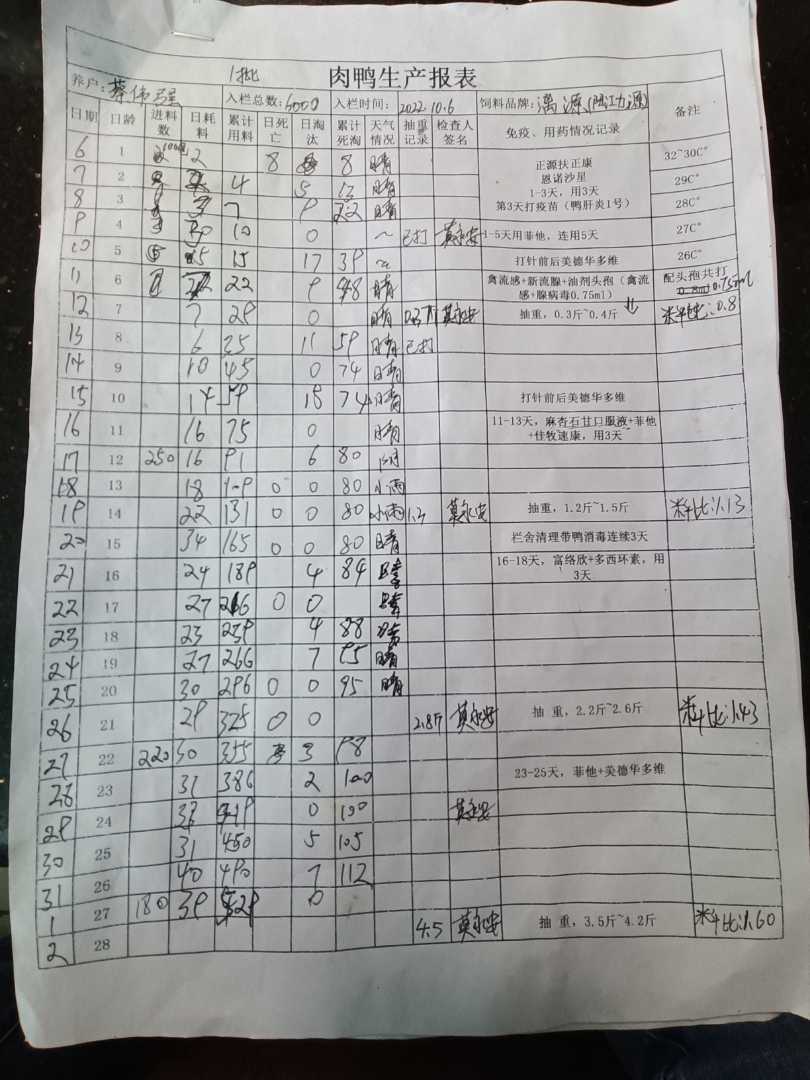 1批 肉鸭生产报表
养户: 蔡伟强 入栏总数: 6000 入栏时间: 2022.10.6 饲料品牌: 漓源(阳江功源)
日期 日龄 进料数 日耗料 累计用料 日死亡 日淘汰 累计死淘 天气情况 抽重记录 检查人签名 免疫、用药情况记录 备注
6 1 2 8 8 晴 正源扶正康 32~30C°
7 2 4 5 13 晴 恩诺沙星 29C°
8 3 7 9 22 晴 1-3天，用3天 第3天打疫苗（鸭肝炎1号） 28C°
9 4 10 0 ~ 已打 莫永安 1-5天用菲他，连用5天 27C°
10 5 5 15 17 39 ~ 打针前后美德华多维 26C°
11 6 22 9 48 晴 禽流感+新流腺+油剂头孢（禽流感+腺病毒0.75ml） 配头孢共打 0.8ml 0.75ml
12 7 7 29 0 晴 莫永安 抽重，0.3斤~0.4斤 料比:0.8
13 8 6 35 11 59 晴 已打
14 9 10 45 0 74 晴
15 10 14 59 15 74 晴 打针前后美德华多维
16 11 16 75 0 晴 11-13天，麻杏石甘口服液+菲他+佳牧速康，用3天
17 12 250 16 91 6 80 晴
18 13 18 109 0 0 80 小雨
19 14 22 131 0 0 80 小雨 1.3 莫永安 抽重，1.2斤~1.5斤 料比:1.13
20 15 34 165 0 0 80 晴 栏舍清理带鸭消毒连续3天
21 16 24 189 4 84 晴 16-18天，富络欣+多西环素，用3天
22 17 27 216 0 0 晴
23 18 23 239 4 88 晴
24 19 27 266 7 95 晴
25 20 30 296 0 0 95 晴
26 21 29 325 0 0 2.8斤 莫永安 抽 重，2.2斤~2.6斤 料比:1.43
27 22 220 30 355 3 98
28 23 31 386 2 100 23-25天，菲他+美德华多维
29 24 33 419 0 100 莫永安
30 25 31 450 5 105
31 26 40 490 7 112
1 27 180 39 529 0
2 28 4.5 莫永安 抽 重，3.5斤~4.2斤 料比:1.60